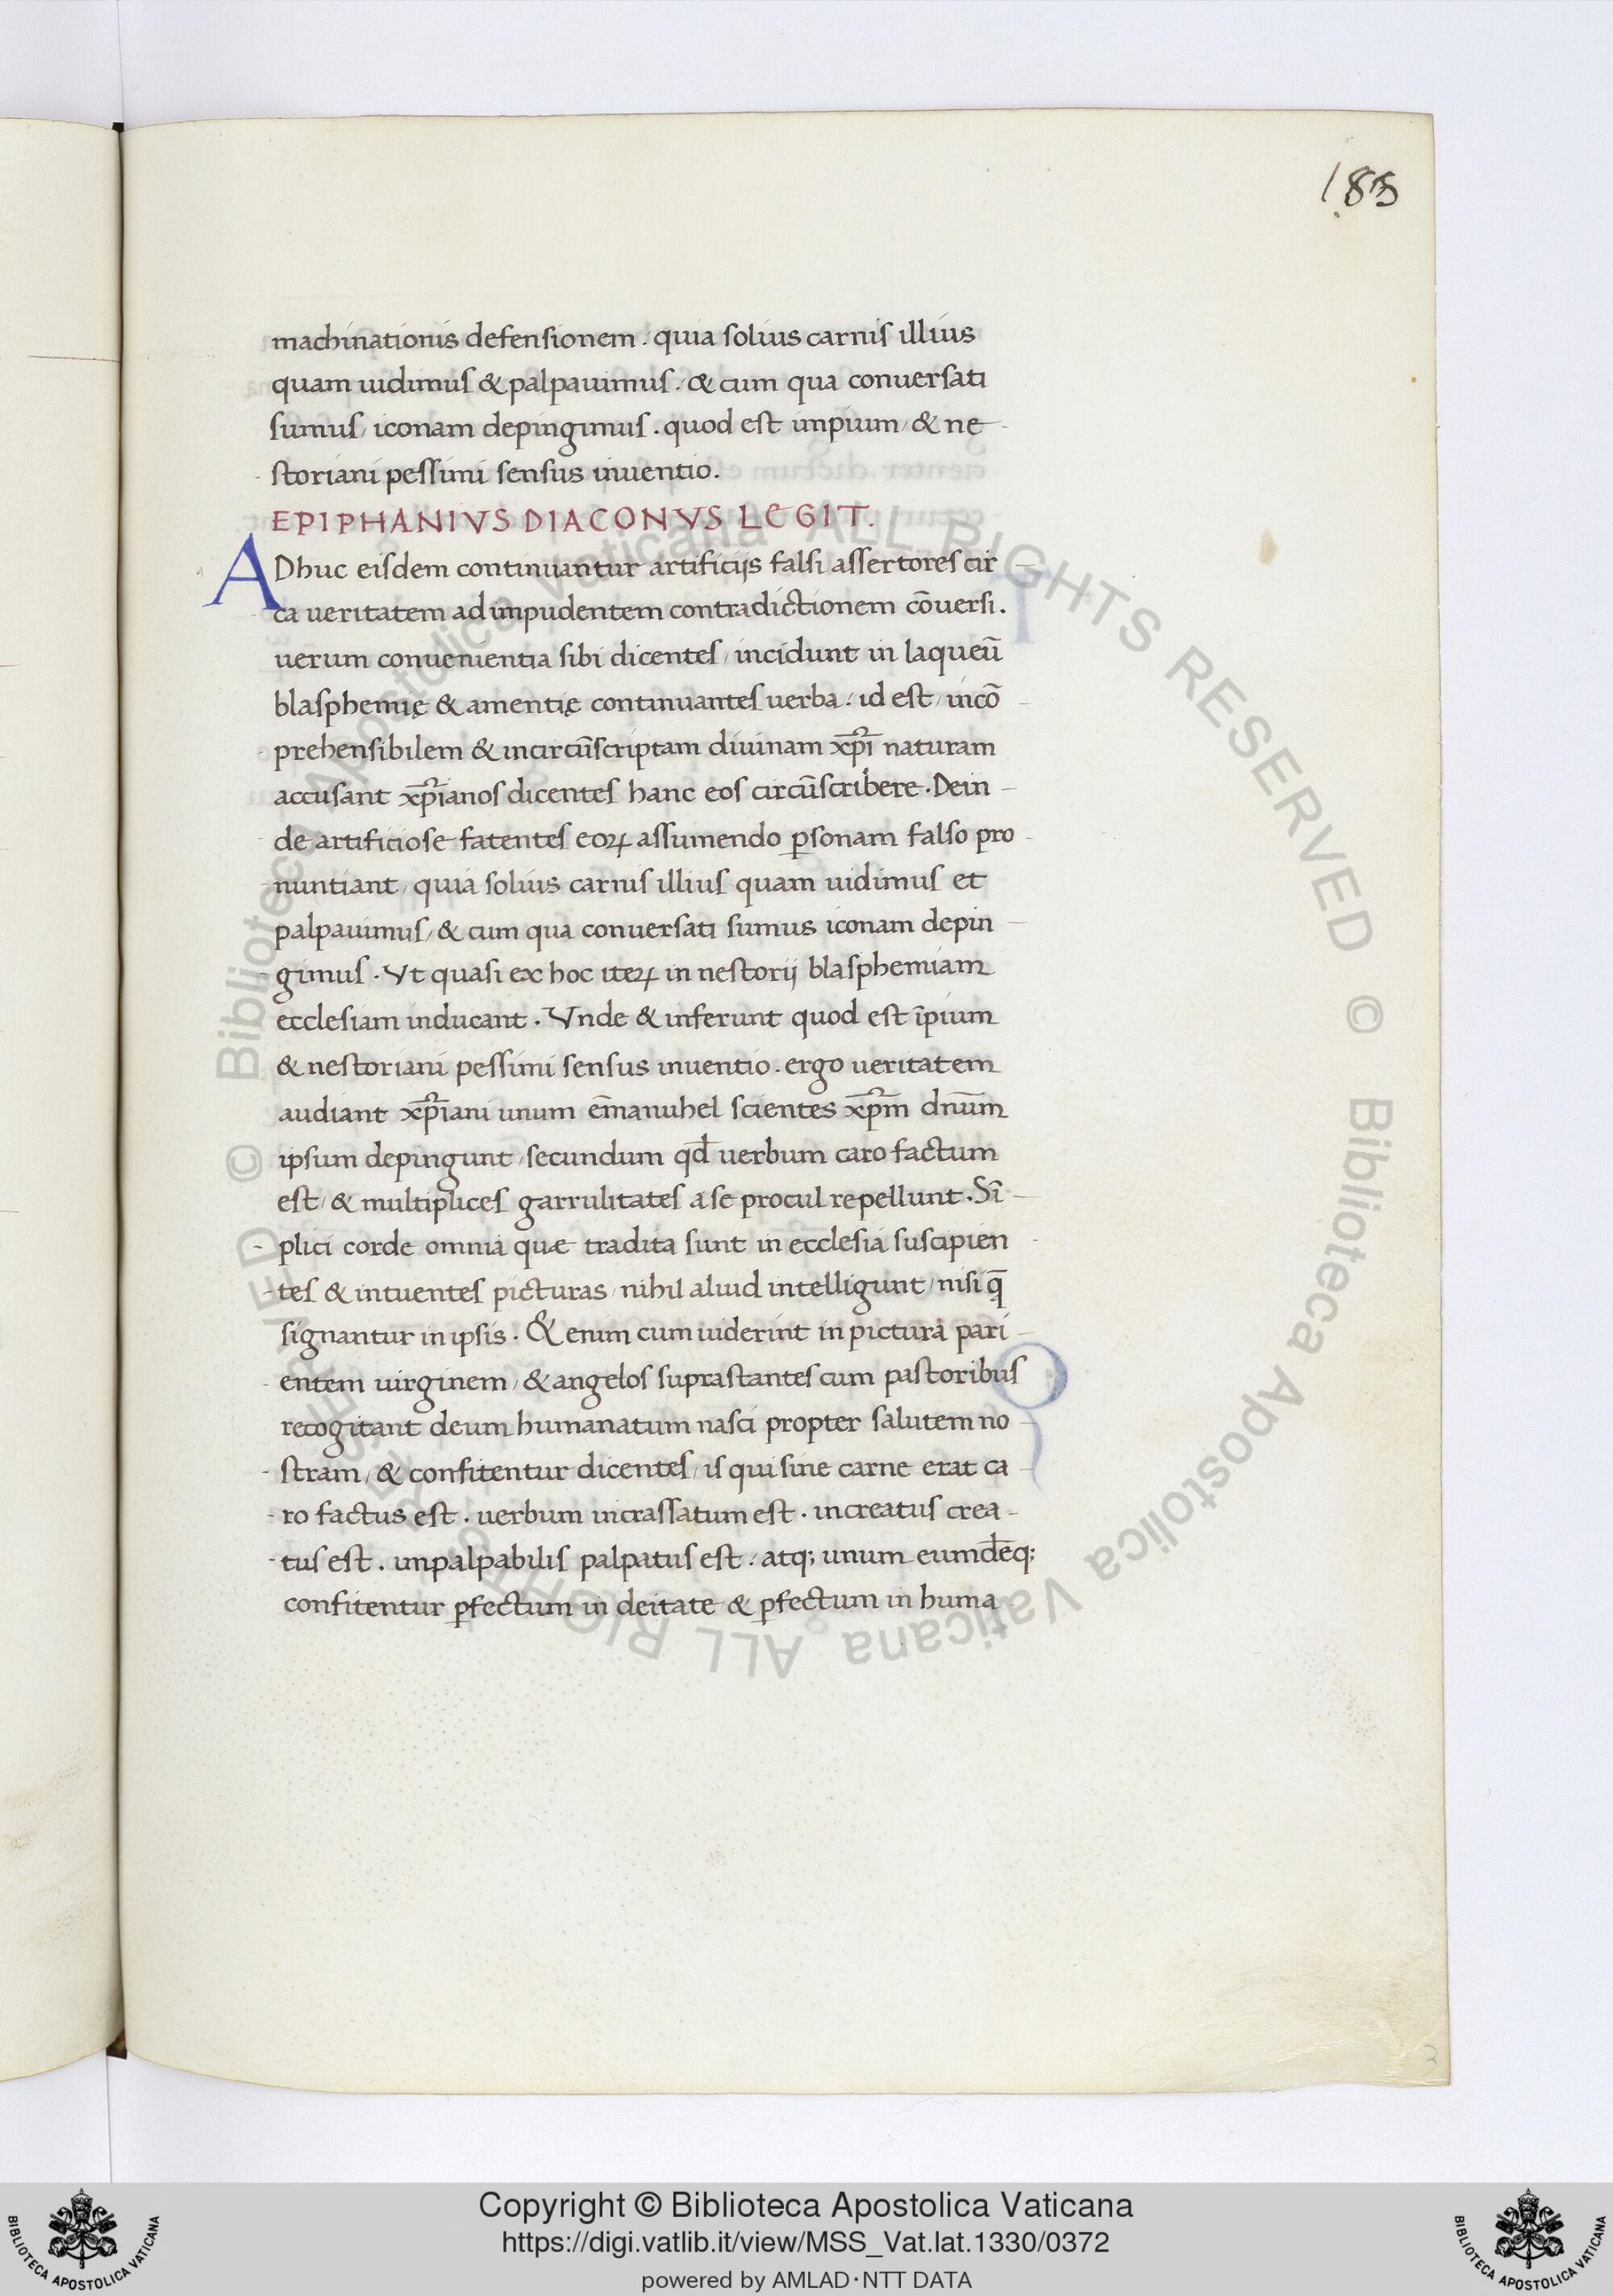 183
machinationis defensionem. quia solius carnis illius
quam uidimus & palpauimus. & cum qua conuersati
sumus, iconam depingimus. quod est impium, & ne-
storiani pessimi sensus inuentio.
EPIPHANIVS DIACONVS LEGIT.
ADhuc eisdem continuantur artificijs falsi assertores cir-
ca ueritatem ad impudentem contradictionem cōuersi.
uerum conuenientia sibi dicentes, incidunt in laqueū
blasphemię & amentię continuantes uerba. id est, incō-
prehensibilem & incircūscriptam diuinam xp̄i naturam
accusant xp̄ianos dicentes hanc eos circūscribere. Dein-
de artificiose fatentes eoꝝ assumendo ꝑsonam falso pro-
nuntiant, quia solius carnis illius quam uidimus et
palpauimus, & cum qua conuersati sumus iconam depin-
gimus. Vt quasi ex hoc iteꝝ in nestorij blasphemiam
ecclesiam inducant. Vnde & inferunt quod est īpium
& nestoriani pessimi sensus inuentio. ergo ueritatem
audiant xp̄iani unum ēmanuhel scientes xp̄m dnūm
ipsum depingunt, secundum qd̄ uerbum caro factum
est, & multiplices garrulitates a se procul repellunt. Sī-
plici corde omnia quæ tradita sunt in ecclesia suscipien-
tes & intuentes picturas, nihil aliud intelligunt, nisi q̄
signantur in ipsis. & enim cum uiderint in pictura pari-
entem uirginem, & angelos suprastantes cum pastoribus
recogitant deum humanatum nasci propter salutem no-
stram, & confitentur dicentes, is qui sine carne erat ca-
ro factus est. uerbum incrassatum est. increatus crea-
tus est. impalpabilis palpatus est. atq; unum eumdēq;
confitentur ꝑfectum in deitate & ꝑfectum in huma
© Biblioteca Apostolica Vaticana ALL RIGHTS RESERVED © Biblioteca Apostolica Vaticana ALL RIGHTS RESERVED
Copyright © Biblioteca Apostolica Vaticana
https://digi.vatlib.it/view/MSS_Vat.lat.1330/0372
powered by AMLAD·NTT DATA
BIBLIOTECA APOSTOLICA VATICANA
BIBLIOTECA APOSTOLICA VATICANA